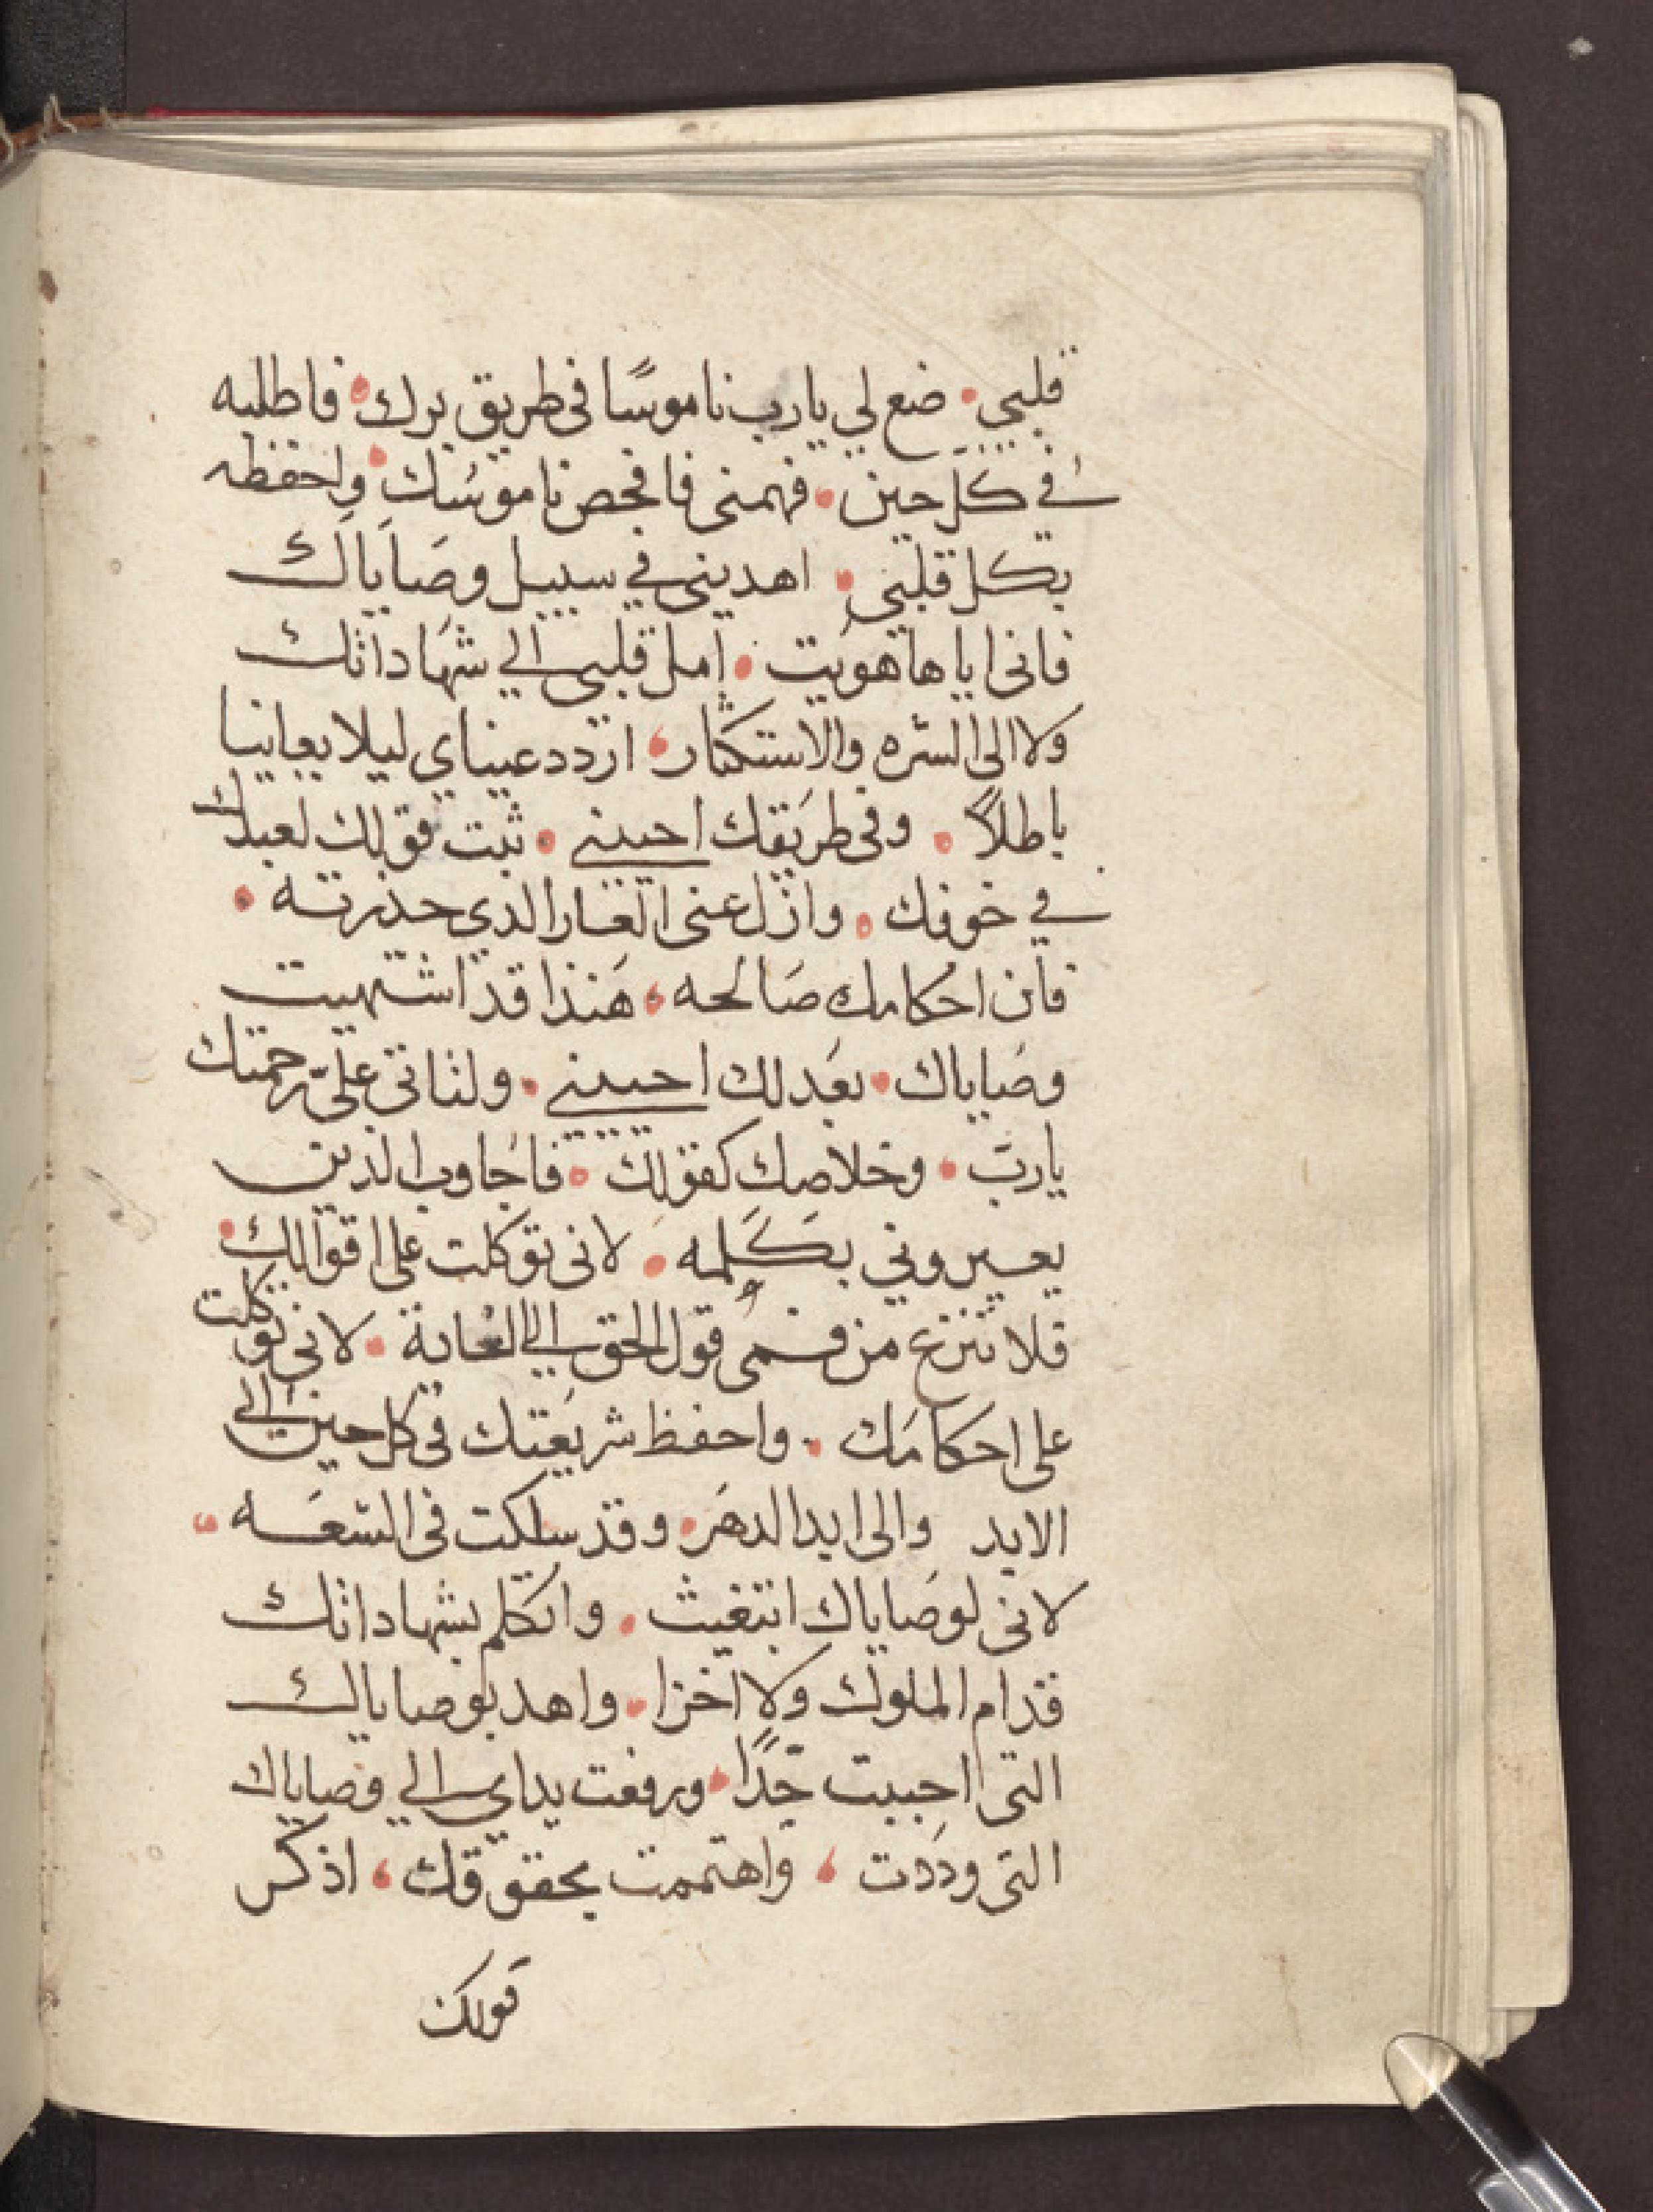 قلبي • ضع لي يارب ناموسًا في طريق برك • فاطلبه
في كل حين • فهمني فافحص ناموسك • واحفظه
بكل قلبي • اهديني في سبيل وصاياك
فاني اياها هويت • امل قلبي الي شهاداتك
ولا الى الشره والاستكثار • اردد عيناي ليلا يعاينا
باطلاً • وفي طريقك احييني • ثبت قولك لعبدك
في خوفك • وازل عني العار الدي حذرته •
فان احكامك صالحه • هنذا قد اشتهيت
وصاياك • بعدلك احييني • ولتاتي عليّ رحمتك
يارب • وخلاصك كقولك • فاجاوب الذين
يعيروني بكلمه • لاني توكلت على اقوالك •
فلا تنزع من فمي قول الحق الي الغاية • لاني توكلت
على احكامك • واحفظ شريعتك في كل حين الي
الابد والى ابد الدهر • وقد سلكت في السعه •
لاني لوصاياك ابتغيت • واتكلم بشهاداتك
قدام الملوك ولا اخزا • واهد بوصاياك
التي احببت جدًا • ورفعت يداي الي وصاياك
التي وددت • واهتممت بحقوقك • اذكر
قولك